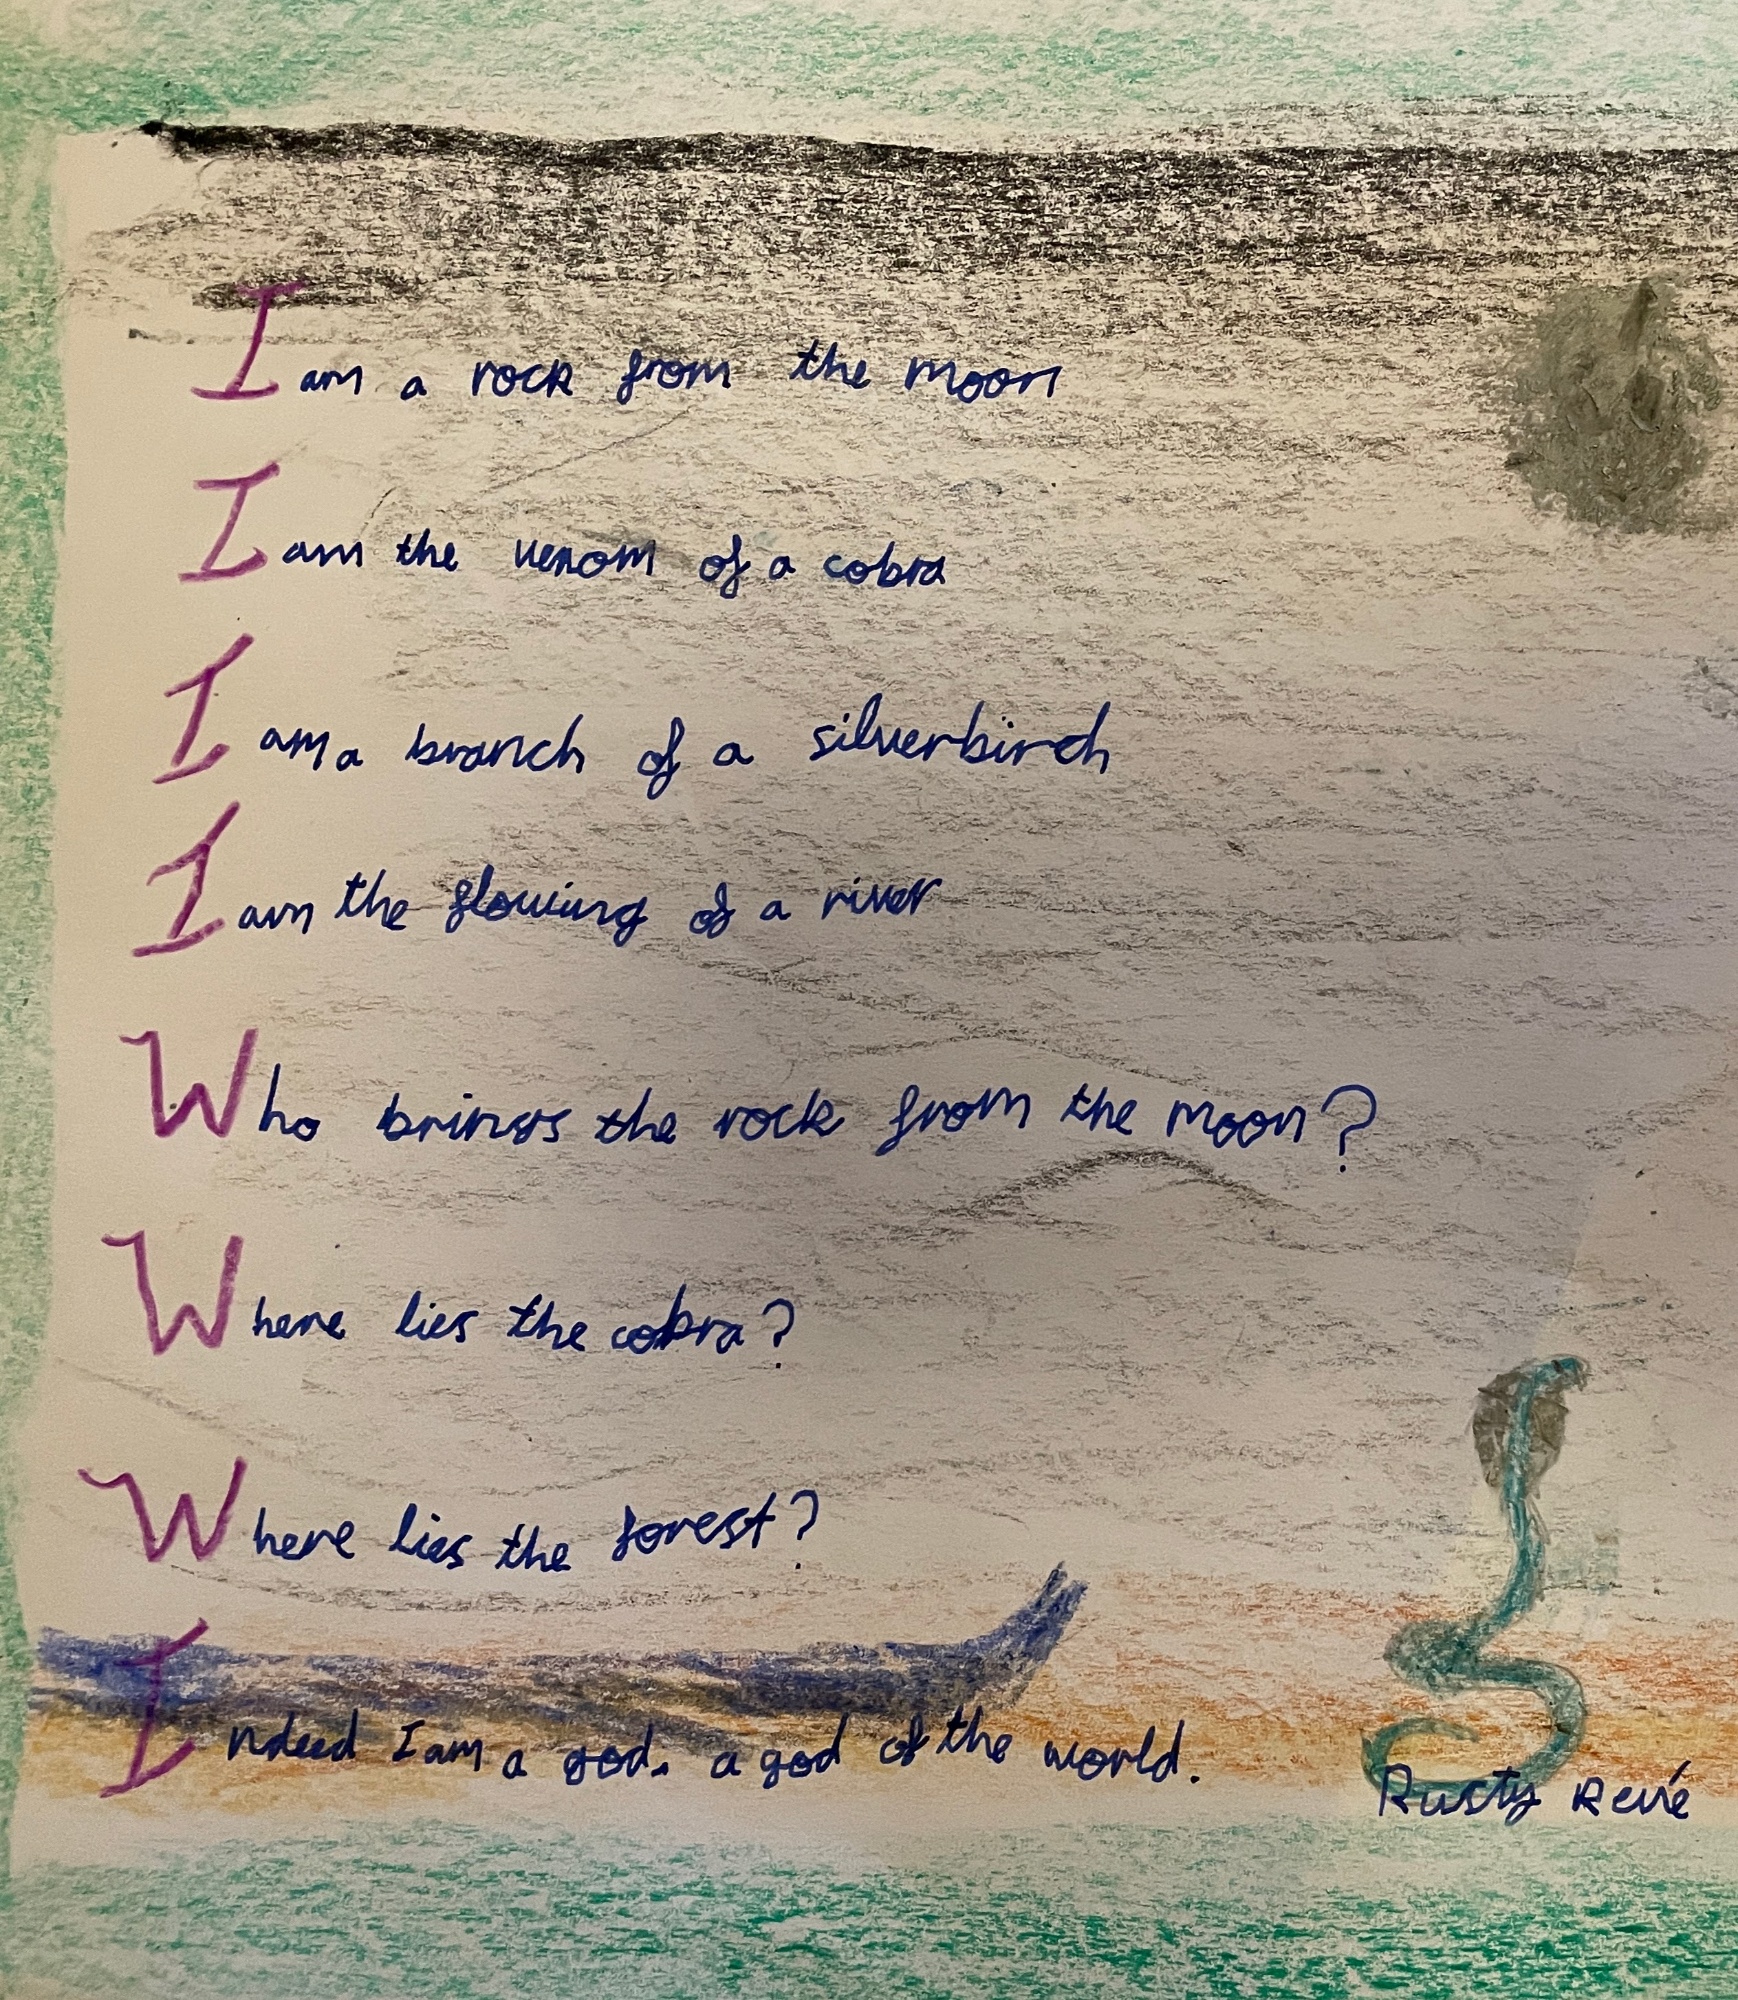 I am a rock from the moon
I am the venom of a cobra
I am a branch of a silverbirch
I am the flowing of a river
Who brings the rock from the moon?
Where lies the cobra?
Where lies the forest?
Indeed I am a god. a god of the world.
Rusty Revé